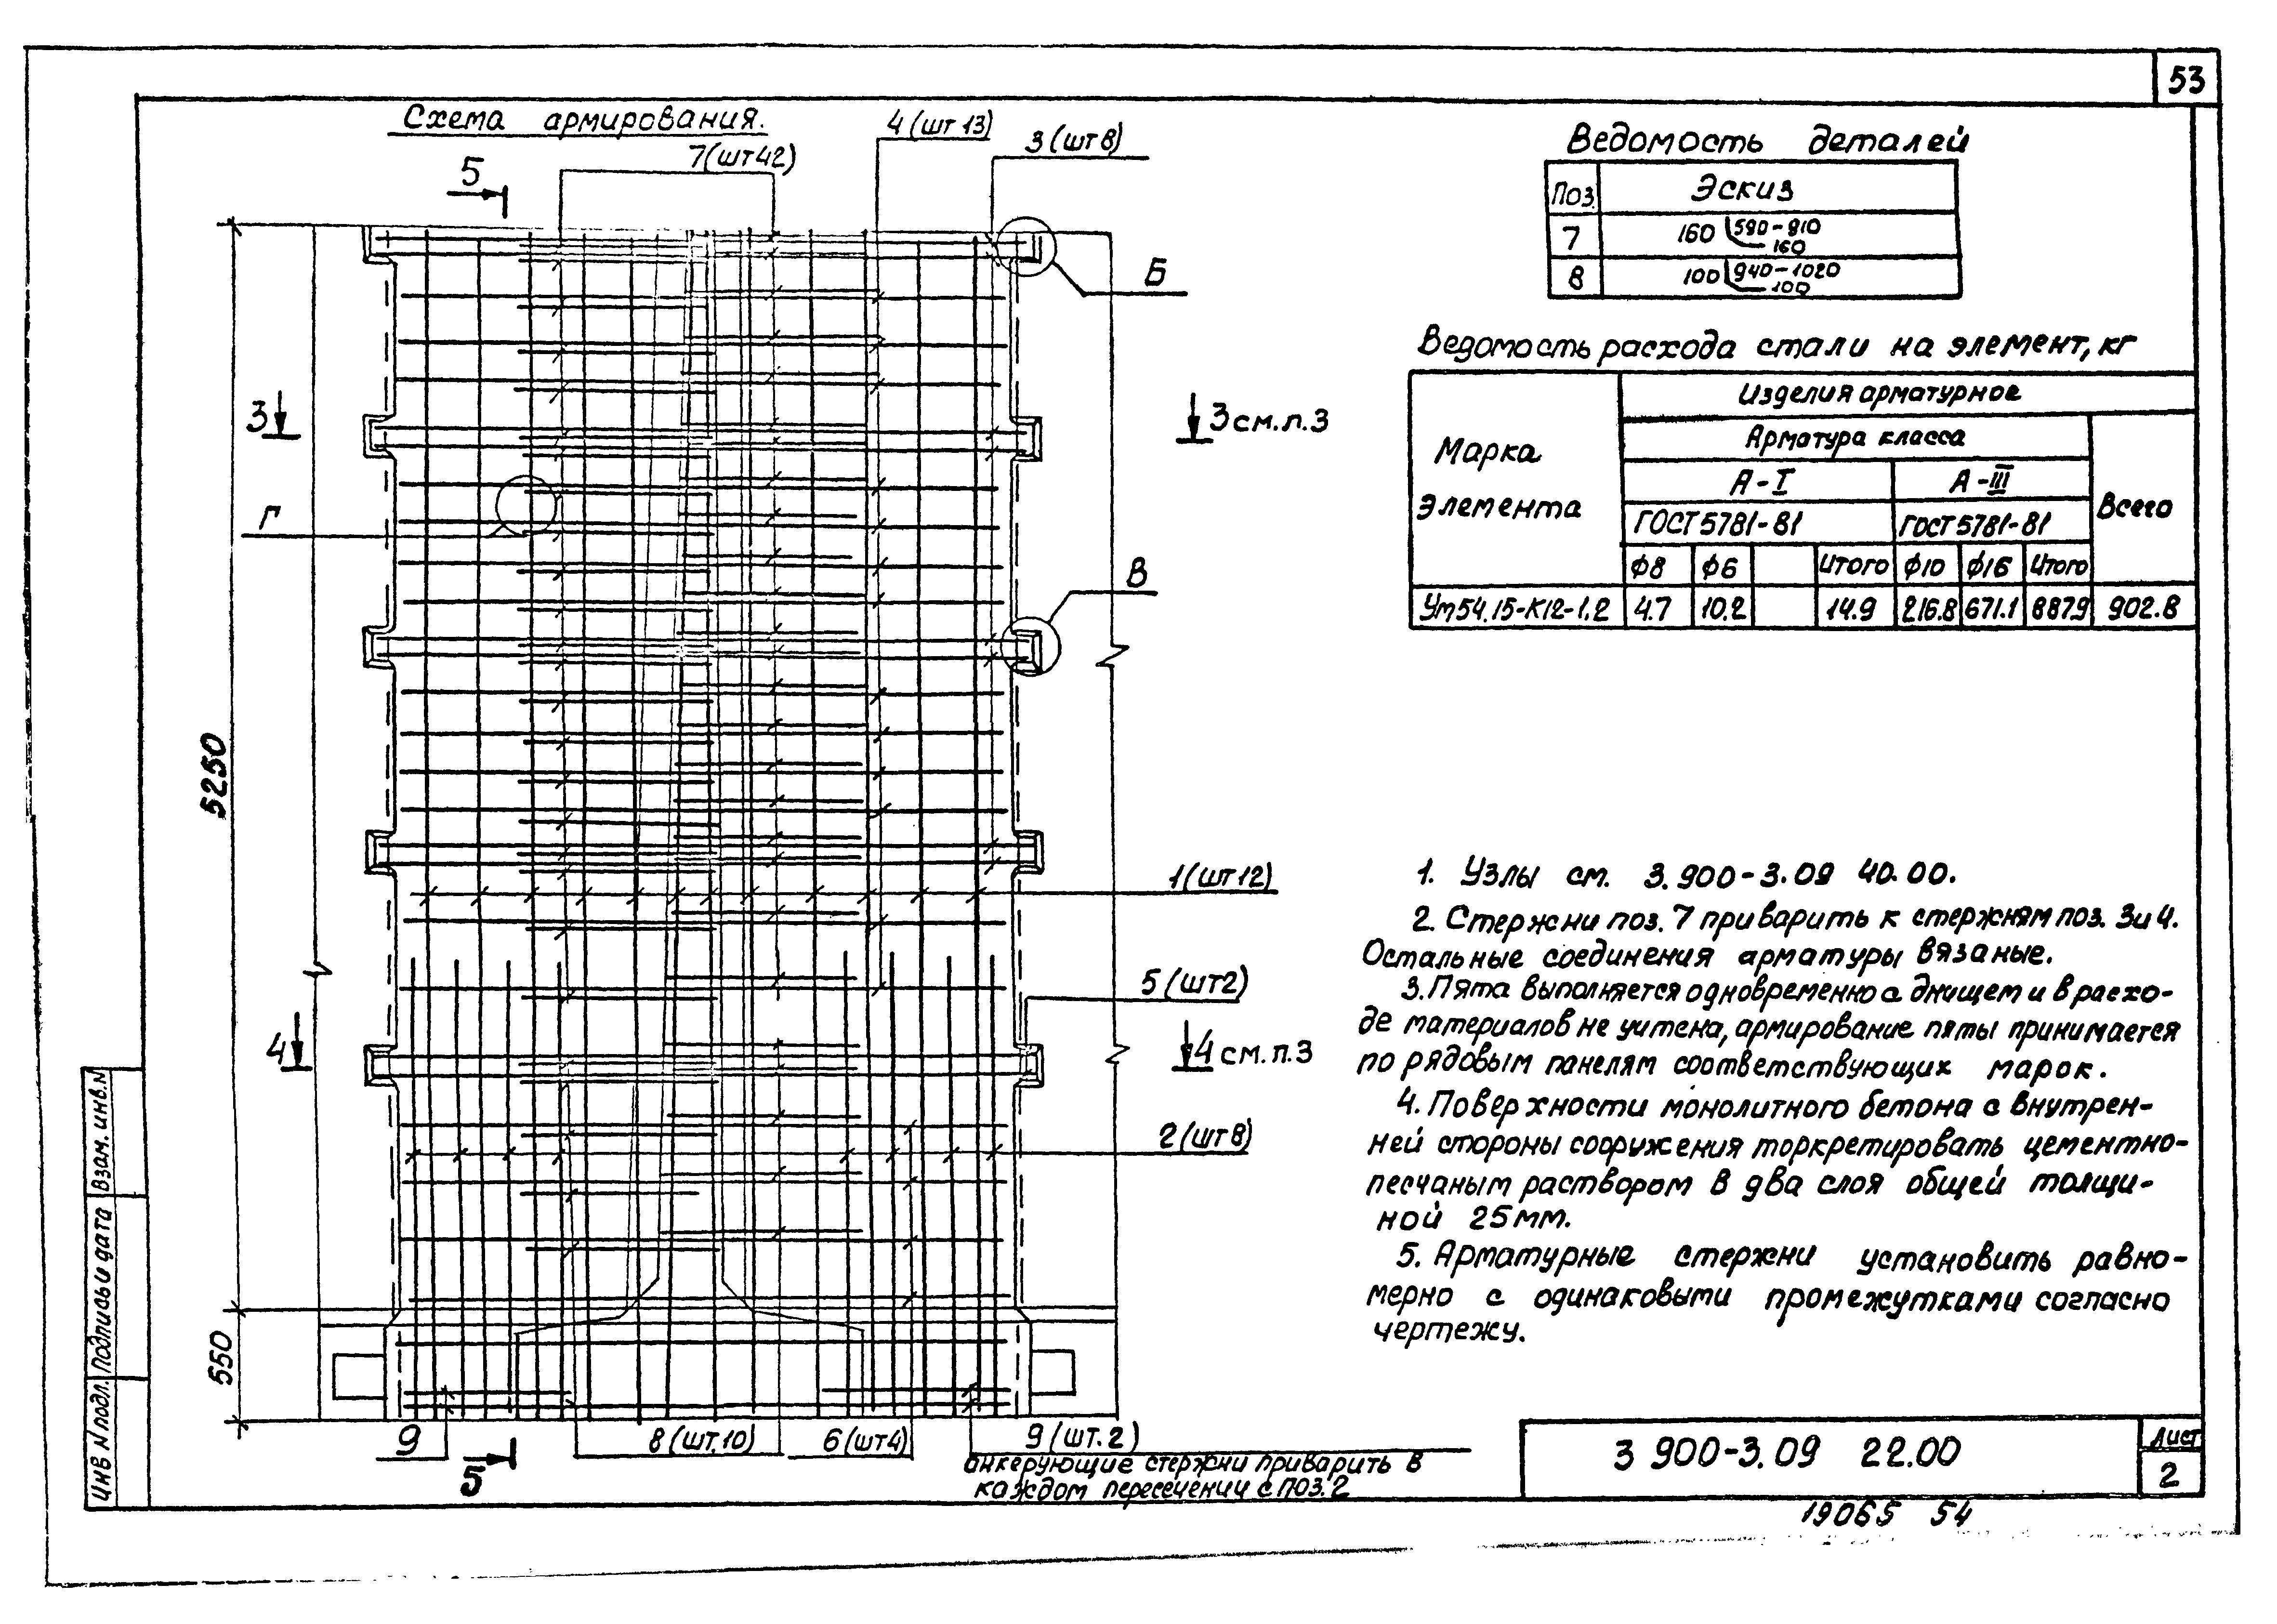 53
Схема армирования.
7(шт42)
4(шт 13)
3(шт8)
5
Б
3
3 см.п.3
Г
В
5250
1(шт12)
5(шт2)
4
4 см.п.3
2(шт8)
550
9
5
8(шт.10)
6(шт4)
9(шт.2)
анкерующие стержни приварить в
каждом пересечении с поз.2
Ведомость деталей
Поз. Эскиз
7 160 590-910 160
8 100 940-1020 100
Ведомость расхода стали на элемент, кг
Марка элемента
Изделия арматурное
Арматура класса
Всего
А-I А-III
ГОСТ 5781-81 ГОСТ 5781-81
ф8 ф6 Итого ф10 ф16 Итого
Ум54.15-К12-1.2 4.7 10.2 14.9 216.8 671.1 887.9 902.8
1. Узлы см. 3.900-3.09 40.00.
2. Стержни поз. 7 приварить к стержням поз. 3 и 4.
Остальные соединения арматуры вязаные.
3. Пята выполняется одновременно с днищем и в расхо-
де материалов не учтена, армирование пяты принимается
по рядовым панелям соответствующих марок.
4. Поверхности монолитного бетона с внутрен-
ней стороны сооружения торкретировать цементно-
песчаным раствором в два слоя общей толщи-
ной 25мм.
5. Арматурные стержни установить равно-
мерно с одинаковыми промежутками согласно
чертежу.
Инв N подл. Подпись и дата Взам. инв. N
3 900-3.09 22.00
Лист
2
19065 54